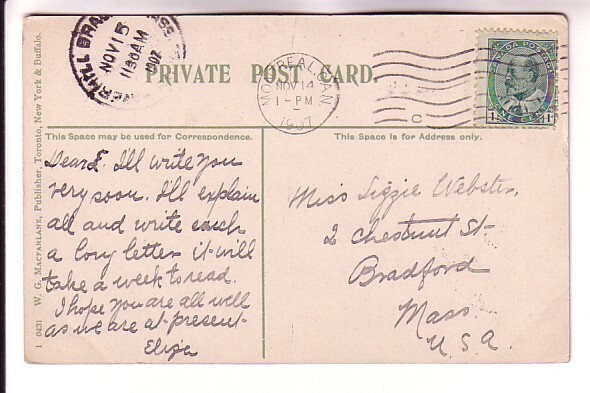 HAVERHILL BRADFORD MASS.
NOV 15
1130AM
1907
PRIVATE POST CARD.
MONTREAL, CAN
NOV 14
1-PM
1907
C
CANADA POSTAGE
1 ONE CENT 1
This Space may be used for Correspondence.
This Space is for Address only.
Dear E. I'll write you
very soon. I'll explain
all and write such
a long letter it will
take a week to read.
I hope you are all well
as we are at present
Eliza
Miss Lizzie Webster,
2 Chestnut St
Bradford
Mass
U.S.A.
1 0431 W. G. MACFARLANE, Publisher, Toronto, New York & Buffalo.